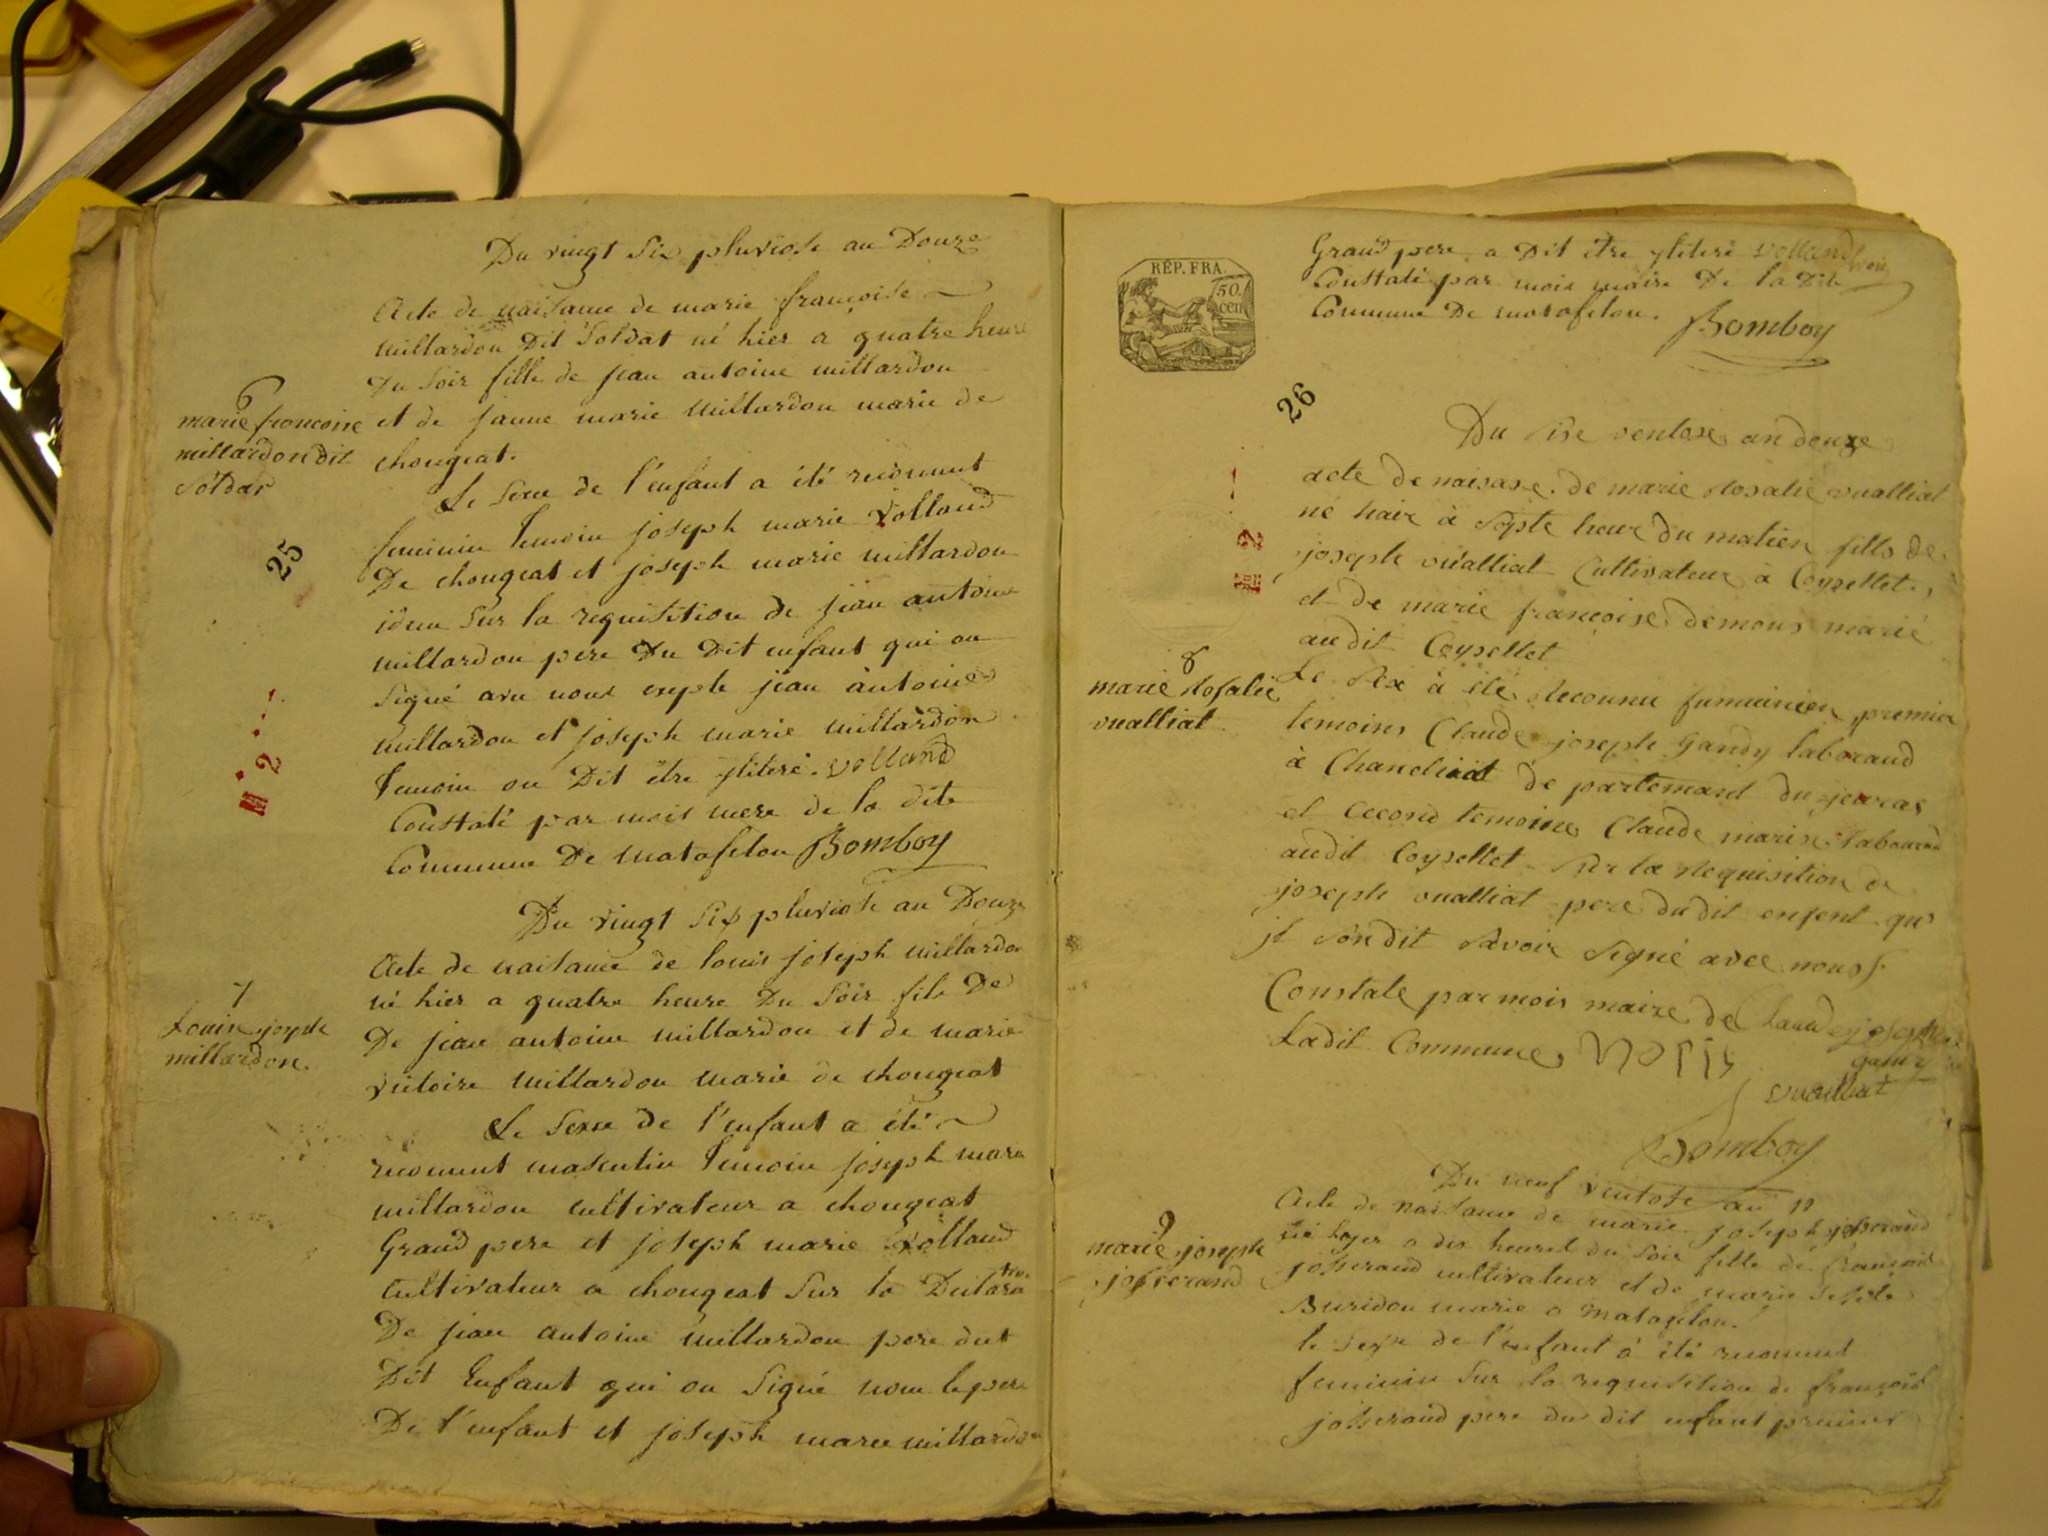 Du vingt Six pluviose an Douze
Acte de naisance de marie françoise
millardon Dit Soldat né hier a quatre heure
Du Soir fille de jean antoine millardon
et de janne marie millardon marie de
chougeat.
6
marie francoise
millardon dit
Soldar
Le Sexe de l'enfant a été reconnut
feminin Temoin joseph marie Volland
De chougeat et joseph marie millardon
idem Sur la requisition de jean antoine
millardon pere Du Dit enfant qui on
Signé avec nous exepte jean antoine
millardon et joseph marie millardon
Temoin on Dit être yliteré. volland
Constaté par mois mere de la dite
Commune De matafelon Bomboy
25
2
Du vingt Six pluviose an Douze
Acte de naisance de louis joseph millardon
né hier a quatre heure Du Soir fils De
De jean antoine millardon et de marie
victoire millardon marie de chougeat
7
Louis joseph
millardon.
Le Sexe de l'enfant a été
reconnut masculin Temoin joseph marie
millardon cultivateur a chougeat
Grand pere et joseph marie Volland
Cultivateur a chougeat Sur la
De jean antoine millardon pere dut
Dit Enfant qui on Signé nom le pere
De l'enfant et joseph marie millardon
RÉP. FRA.
50.
cen.
Grand pere a Dit être yliteré volland
Constaté par mois maire De la Dite
Commune De matafelon. Bomboy
26
2
Du Sixe ventose an douze
acte de naisase de marie Rosalie vualliat
né hair à Septe heure du matien fills de
joseph vualliat Cultivateur à Coysellet,
et de marie francoise demons marié
audit Coysellet
8
marie Rosalie
vualliat
Le Sex à été Reconnu fumienien premier
temoins Claude joseph gandy laboraud
à Chancliat de partemant du jeuras
et cecond temoine Claude marie
audit Coysellet Sur la Requisition de
joseph vualliat pere dudit enfent qu
il Son dit Savoir Signé avec nous
Constate par mois maire de Claude joseph
Ladit Commune gandy
vualliat
Bomboy
Du neuf ventose an 12
Acte de naisance de marie joseph josserand
né hyer a dix heures du Soir fille de françois
josserand cultivateur et de marie
Buridon marie a matafelon.
9
marie joseph
josserand
le Sexe de l'enfant a été reconnut
feminin Sur la requisition de françois
josserand pere du dit enfant premier